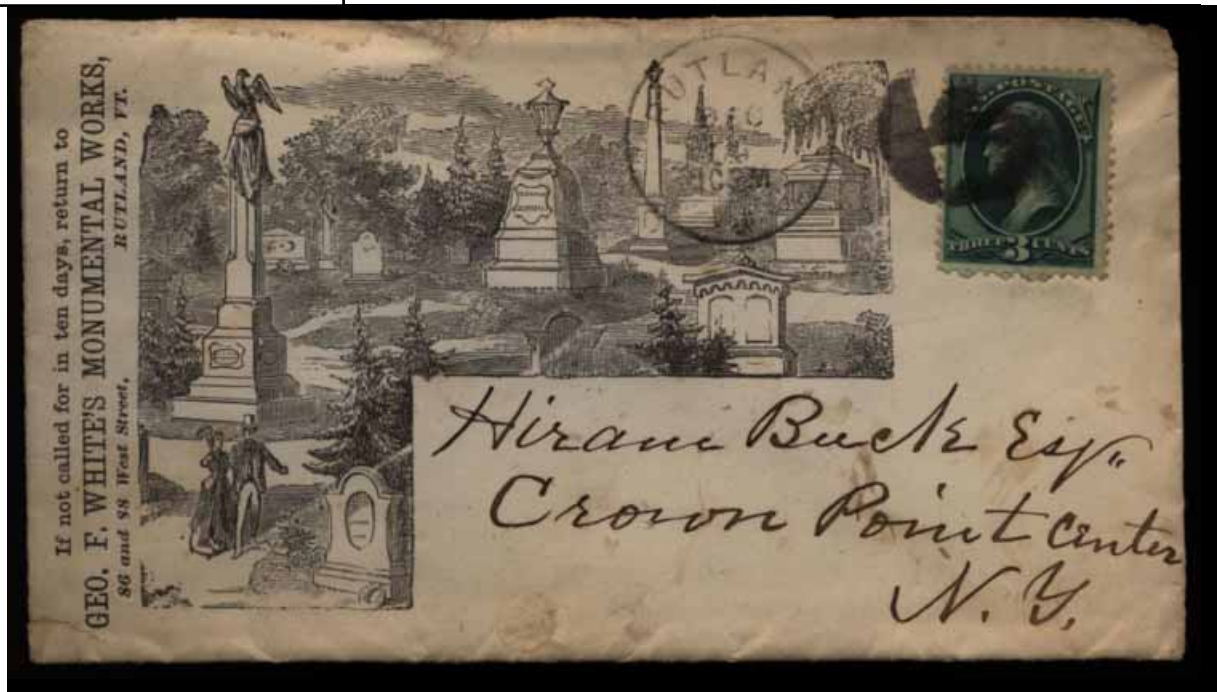 If not called for in ten days, return to
GEO. F. WHITE'S MONUMENTAL WORKS,
86 and 98 West Street, RUTLAND, VT.
UTLAN
U.S. POSTAGE
THREE 3 CENTS
Hiram Buck Esq.
Crown Point Center
N. Y.